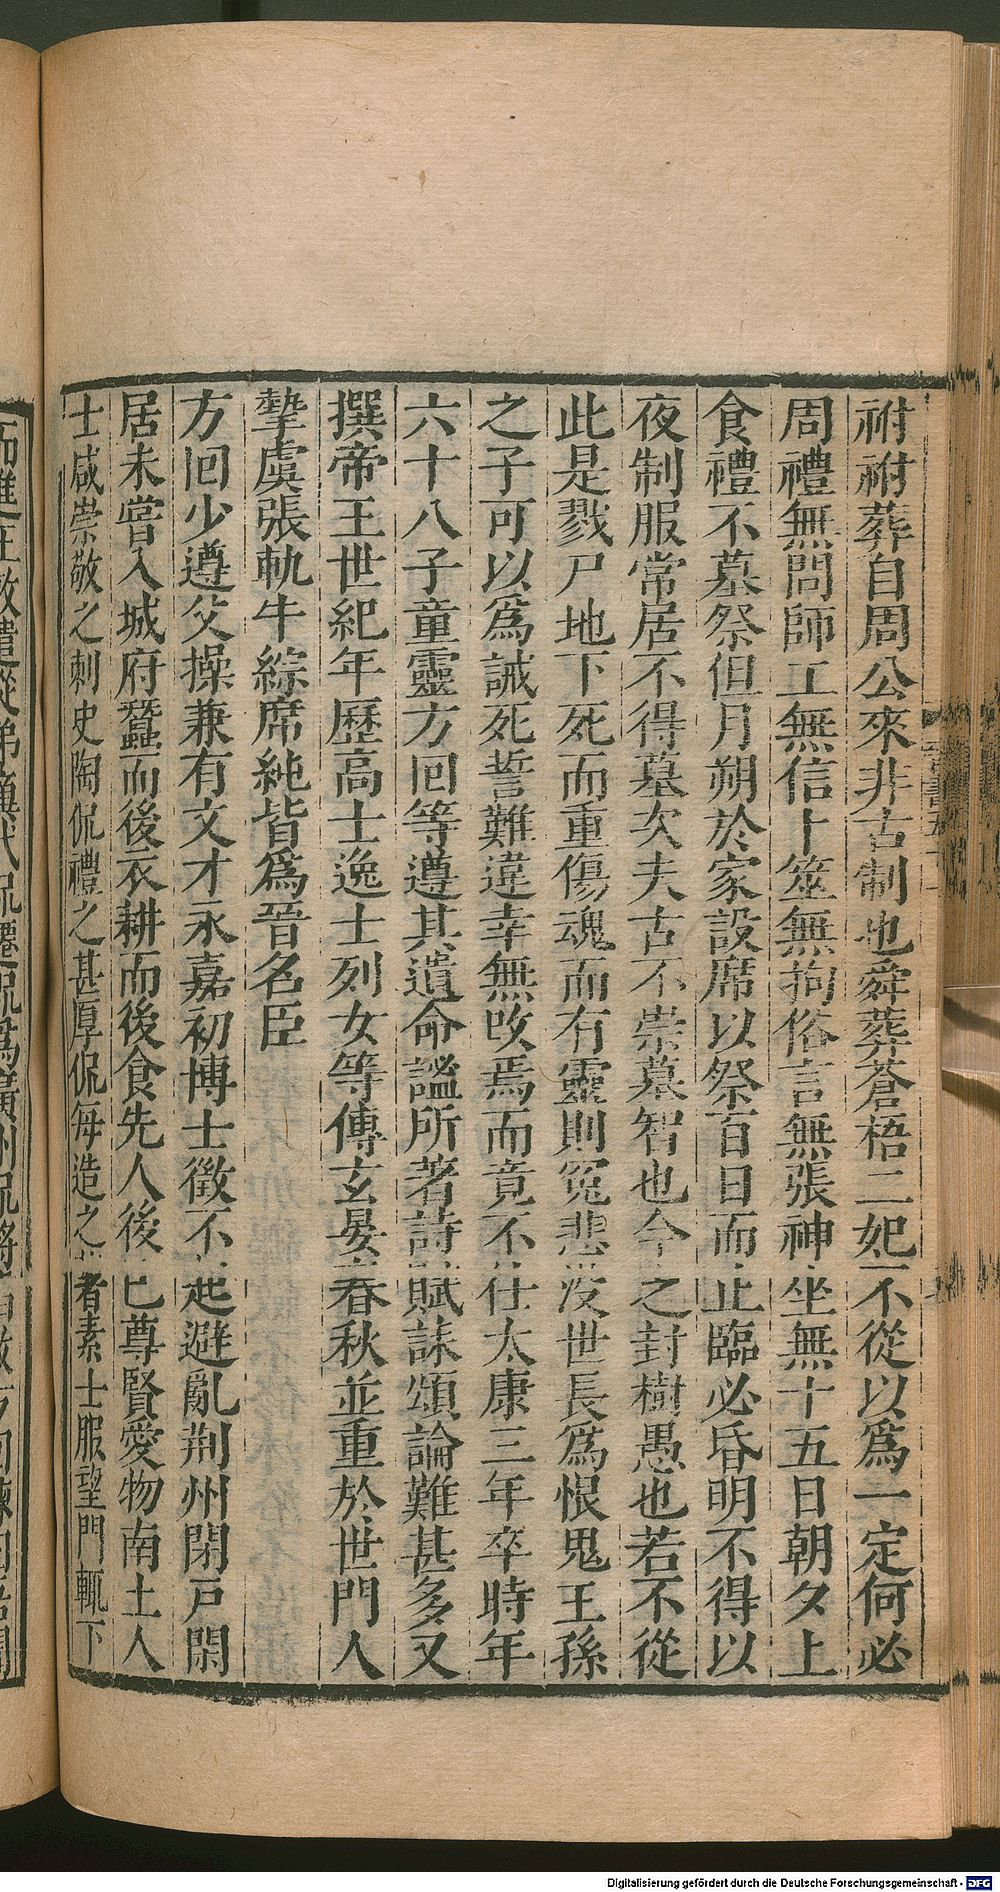 祔祔葬自周公來非古制也舜葬蒼梧二妃不從以爲一定何必
周禮無問師工無信卜筮無拘俗言無張神坐無十五日朝夕上
食禮不墓祭但月朔於家設席以祭百日而止臨必昏明不得以
夜制服常居不得墓次夫古不崇墓智也今之封樹愚也若不從
此是戮尸地下死而重傷魂而有靈則冤悲沒世長爲恨鬼王孫
之子可以爲誡死誓難違幸無攺焉而竟不仕太康三年卒時年
六十八子童靈方囘等遵其遺命謚所著詩賦誄頌論難甚多又
撰帝王世紀年歷高士逸士列女等傳玄晏春秋並重於世門人
摯虞張軌牛綜席純皆爲晉名臣
方囘少遵父操兼有文才永嘉初博士徵不起避亂荆州閉戸閑
居未嘗入城府蠶而後衣耕而後食先人後已尊賢愛物南土人
士咸崇敬之刺史陶侃禮之甚厚侃每造之著素士服望門輒下
而進王敦遣從弟廙代侃遷侃爲廣州侃將
Digitalisierung gefördert durch die Deutsche Forschungsgemeinschaft - DFG